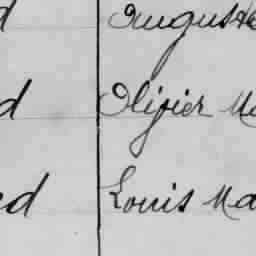 d Auguste
d Olivier Ma
ed Louis Ma